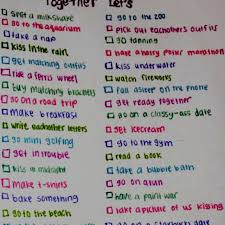 Together Let's
get a milkshake
go to the aquarium
take a nap
kiss in the rain
get matching outfits
ride a ferris wheel
buy matching bracelets
go on a road trip
make breakfast
write eachother letters
go mini golfing
get in trouble
kiss at midnight
make t-shirts
bake something
go to the beach
go to the zoo
pick out eachother's outfits
go tanning
have a harry potter marathon
kiss underwater
watch fireworks
fall asleep together
get ready together
go on a classy-ass date
get icecream
go to the gym
read a book
take a bubble bath
go on a run
have a paint war
take a picture of us kissing
go on a starbucks date